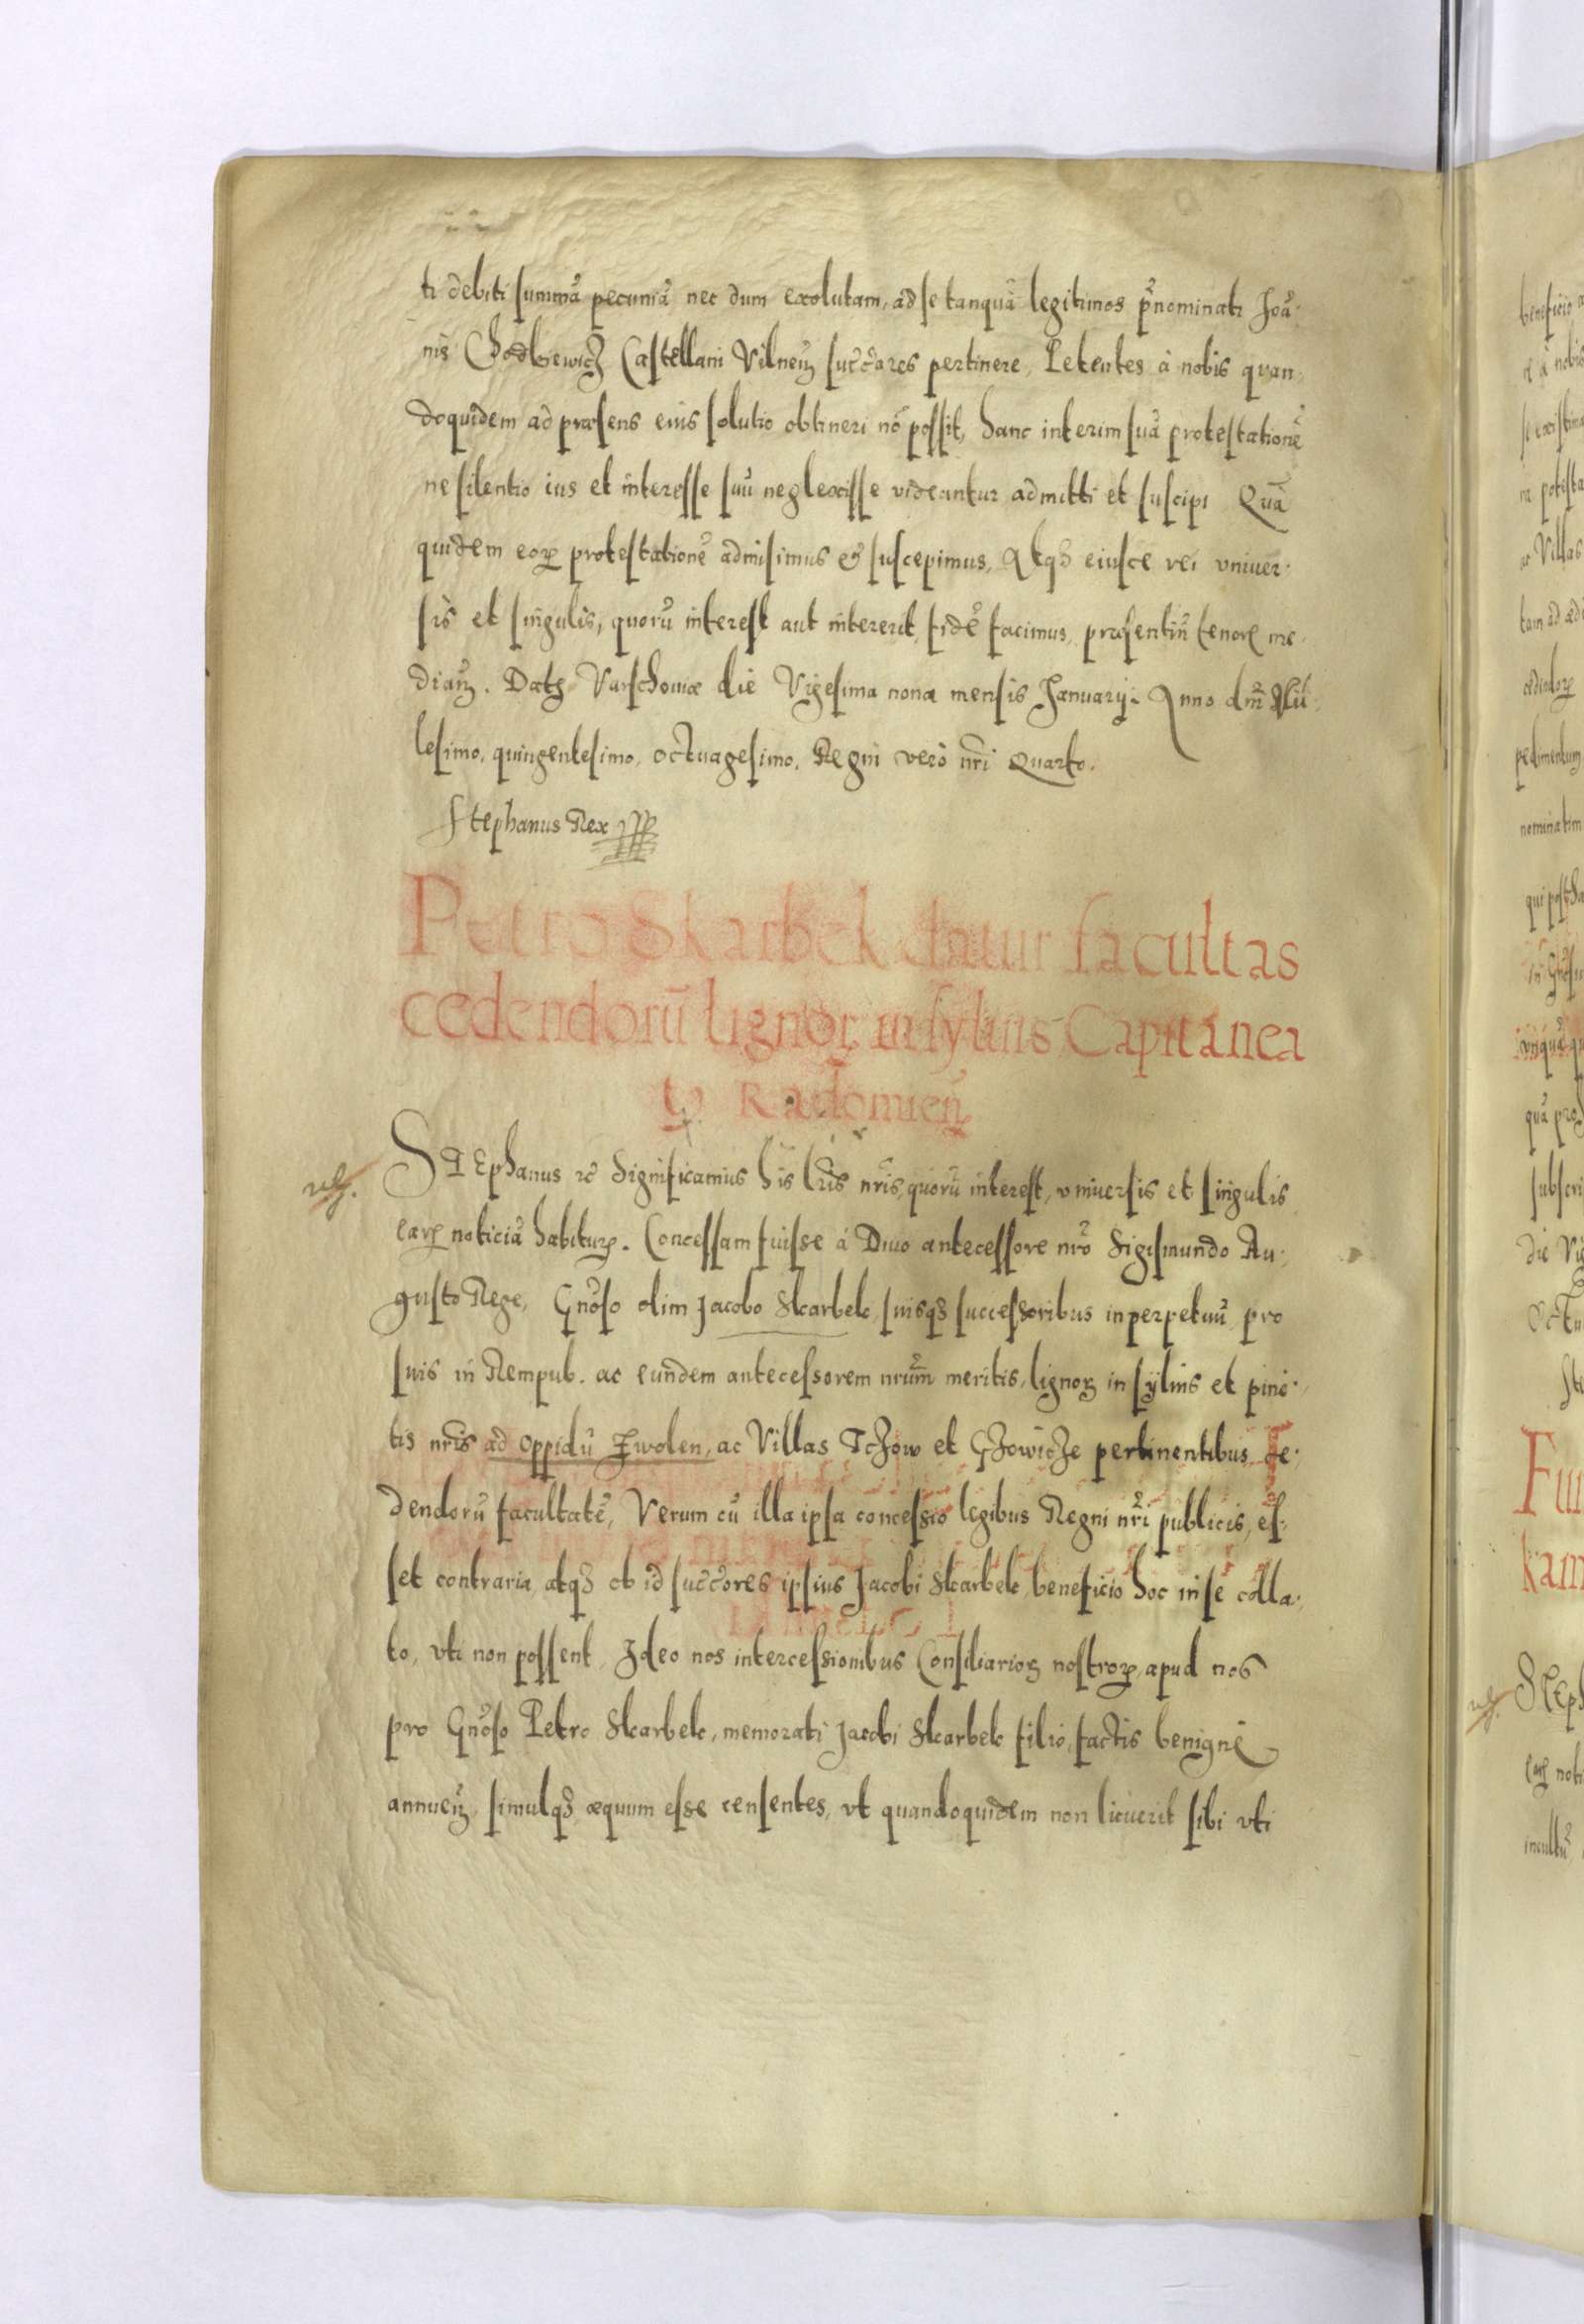 ti debiti summā pecuniā nec dum exolutam, ad se tanquā legitimos p̄nominati Joā-
nis Chodkiewicz Castellani Vilneñ succ̄ores pertinere, Petentes à nobis quan-
doquidem ad præsens eius solutio obtineri nō possit, hanc interim suā protestationē
ne silentio ius et interesse suū neglexisse videantur admitti et suscipi Quā
quidem eoꝝ protestationē admisimus et suscepimus, Atqꝫ eiusce rei vniuer-
sis et singulis, quorū interest aut intererit, fidē facimus, præsentiū tenore me-
diañ. Datꝫ Varschouiæ die Vigesima nona mensis Januarij. Anno dn̄i Mil-
lesimo, quingentesimo, octuagesimo, Regni verò nr̄i Quarto.
Stephanus Rex
Petro Skarbek datur facultas
cedendorū lignoꝝ in syluis Capitanea
tꝯ Radomieñ
STEphanus ꝛc̄ Significamus his lr̄is nr̄is, quorū interest, vniuersis et singulis
earꝝ noticiā habiturꝭ. Concessam fuisse à Diuo antecessore nr̄o Sigismundo Au-
gusto Rege, Gnōso olim Jacobo Skarbek, suisqꝫ successoribus in perpetuū, pro
suis in Rempub. ac eundem antecessorem nr̄um meritis, lignoꝝ in syluis et pine-
tis nr̄is ad oppidū Zwolen, ac Villas Tczow et Czowicze pertinentibus ce-
dendorū facultatē, Verum cū illa ipsa concessio legibus Regni nr̄i publicis, es-
set contraria, atqꝫ ob id succ̄ores ipsius Jacobi Skarbek, beneficio hoc in se colla-
to, vti non possent, Ideo nos intercessionibus Consiliarioꝝ nostroꝝ, apud nos
pro Gnōso Petro Skarbek, memorati Jacobi Skarbek filio, factis benignè
annueñ, simulqꝫ æquum esse censentes, vt quandoquidem non licuerit sibi vti